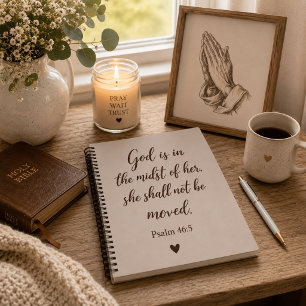 PRAY
WAIT
TRUST
HOLY
BIBLE
God is in
the midst of her,
she shall not be
moved.
Psalm 46:5